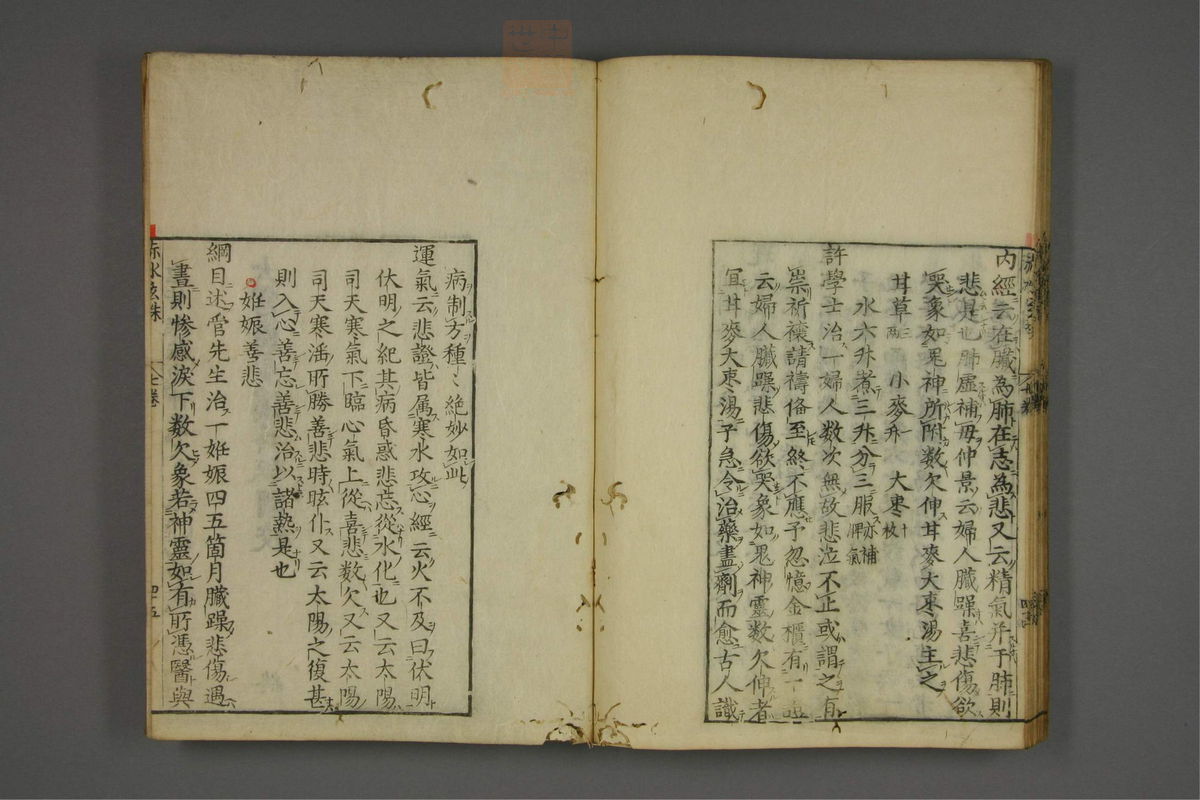 内經云在臟為肺在志為悲又云精氣并于肺則
悲是也肺虛補毋仲景云婦人臟躁喜悲傷欲
哭象如鬼神所附数欠伸甘麥大棗湯主之
甘草三兩 小麥一升 大棗十枚
水六升煮三升分三服亦補脾氣
許學士治一婦人数次無故悲泣不止或謂之有
祟祈禳請禱俻至終不應予忽憶金櫃有一證
云婦人臟躁悲傷欲哭象如鬼神靈数欠伸者
宜甘麥大棗湯予急令治藥盡劑而愈古人識
病制方種〻絶妙如此
運氣云悲證皆属寒水攻心經云火不及曰伏明
伏明之紀其病昏惑悲忘從水化也又云太陽
司天寒氣下臨心氣上從喜悲数欠又云太陽
司天寒淫所勝善悲時眩仆又云太陽之復甚
則入心善忘善悲治以諸熱是也
姙娠善悲
綱目述管先生治一姙娠四五箇月臟躁悲傷遇
晝則惨感淚下数欠象若神靈如有所憑醫與
赤水玄珠 七卷 四十五